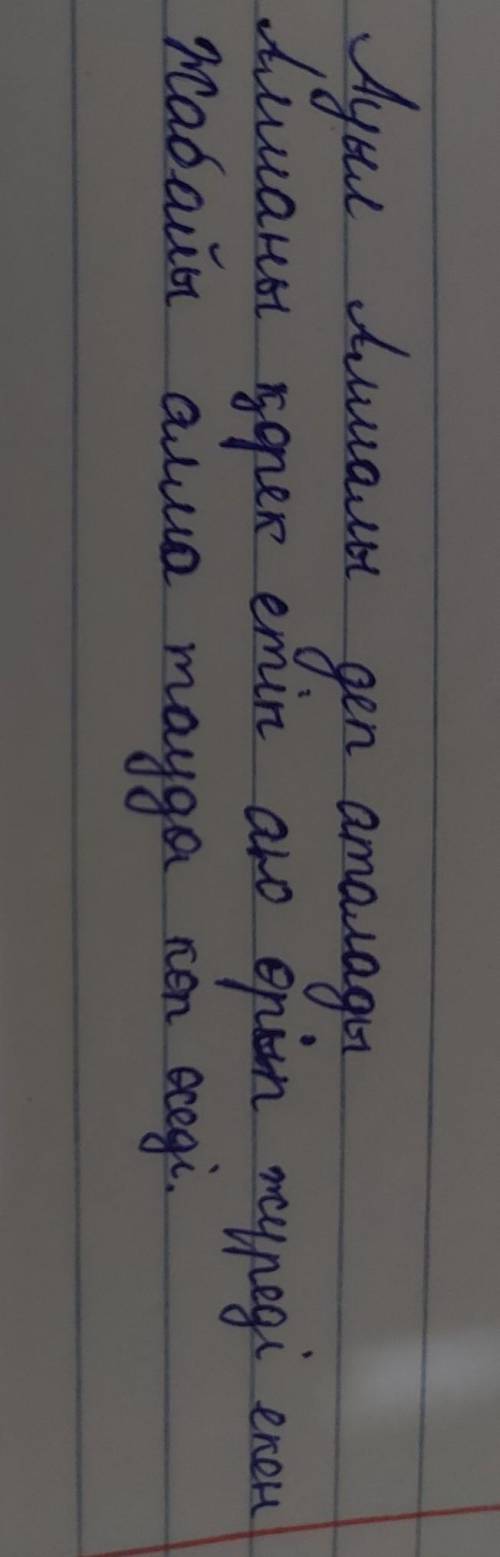 Ауыл Алмалы деп аталады
Алманы қорек етіп аю өріп жүреді екен
Жабайы алма тауда көп өседі.